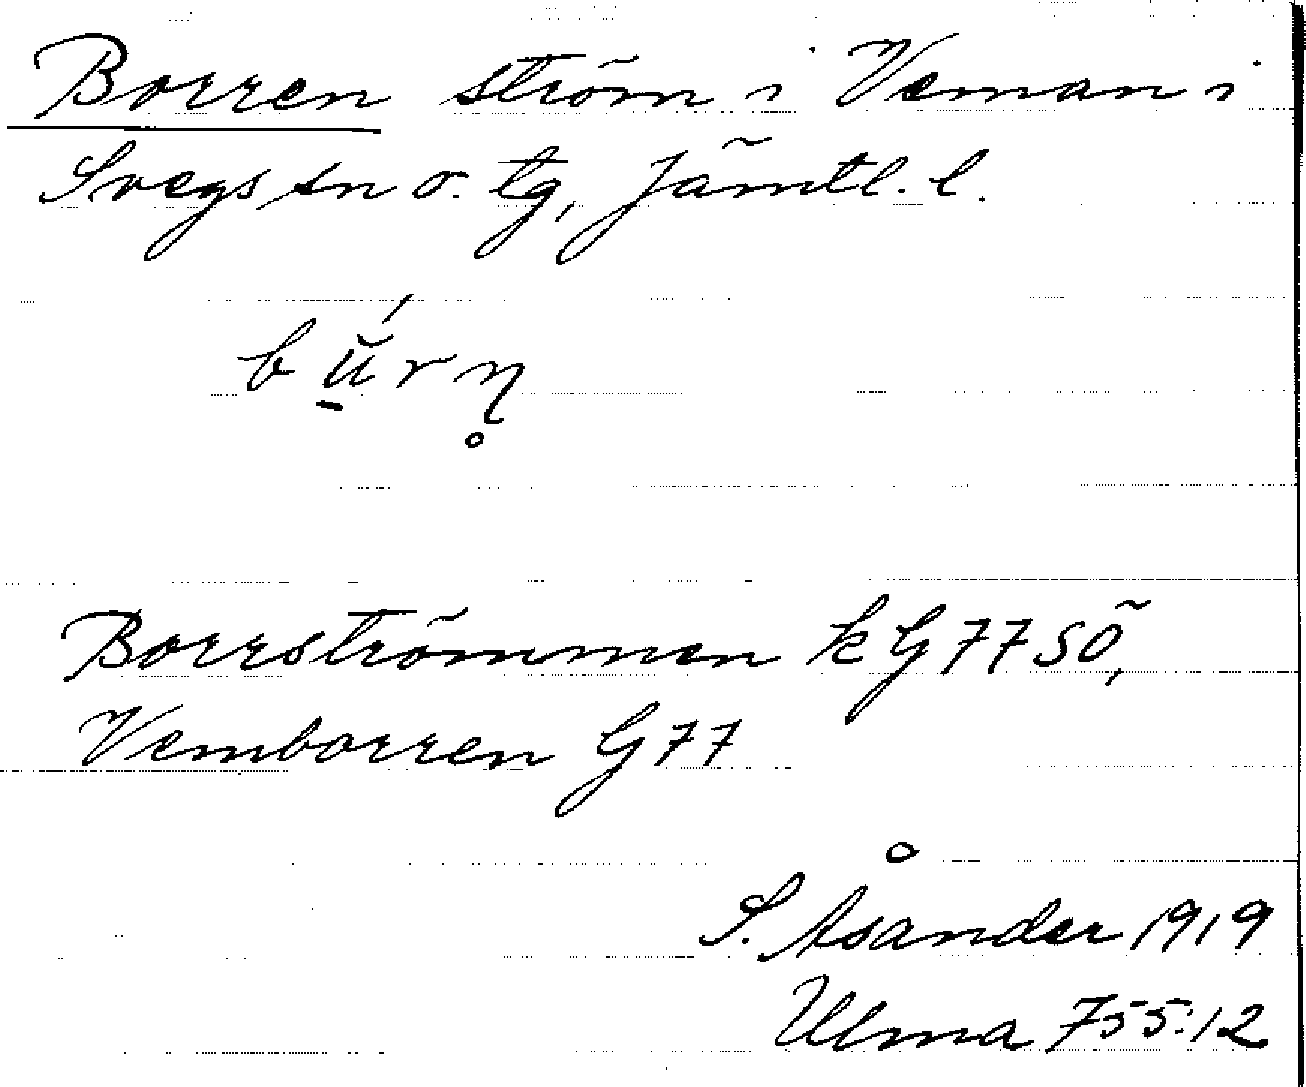 Borren ström i Veman i
Svegs sn o. tg, Jämtl. l.
bŭ̠́rn̥
Borrströmmen kG77SÖ,
Vemborren G77
S. Åsander 1919
Ulma 755:12